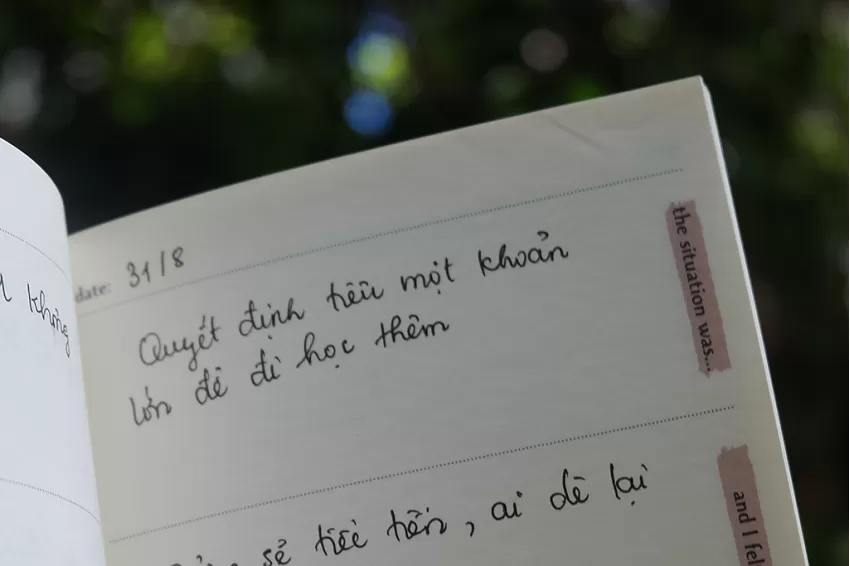 khộng
date: 31/8
the situation was...
Quyết định tiêu một khoản
lớn để đi học thêm
and I fel
sẻ tiếc tiền, ai dè lại